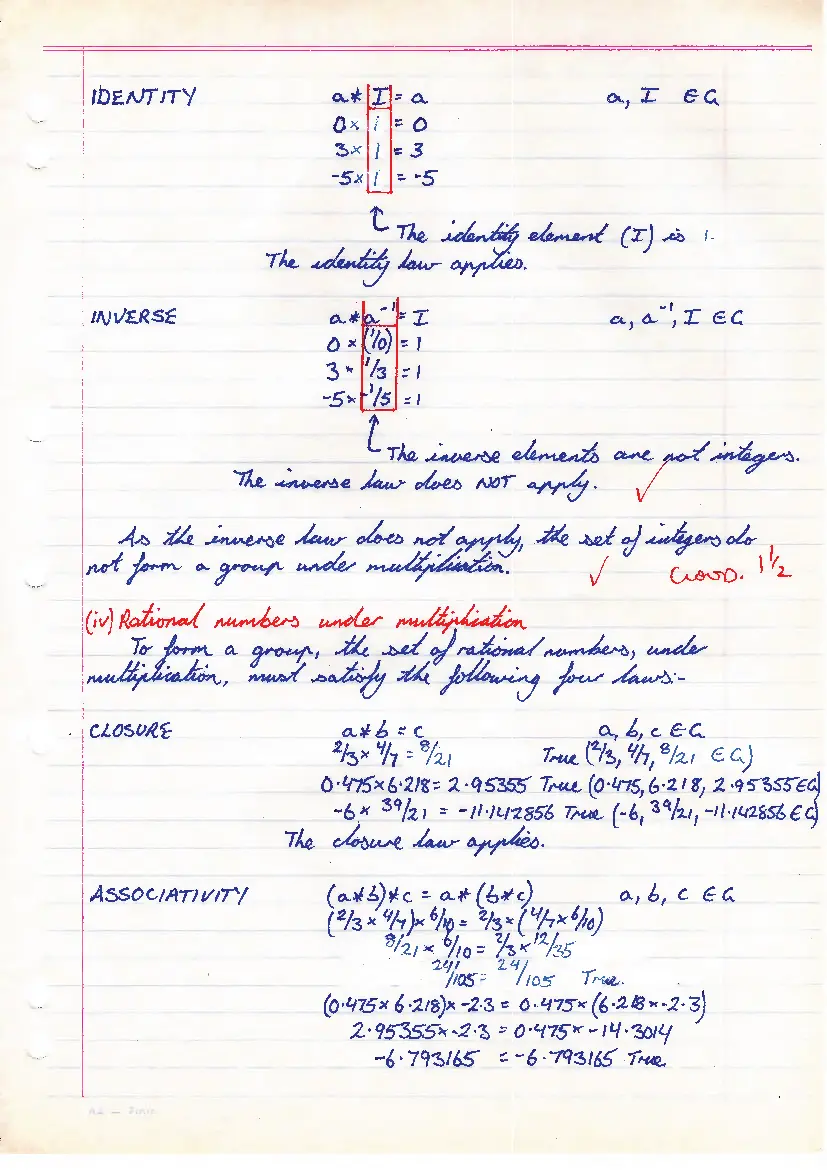 IDENTITY a * I = a a, I ∈ G
0 × 1 = 0
3 × 1 = 3
-5 × 1 = -5
The identity element (I) is 1.
The identity law applies.
INVERSE a * a⁻¹ = I a, a⁻¹, I ∈ G
0 × (1/0) = 1
3 × 1/3 = 1
-5 × -1/5 = 1
The inverse elements are not integers.
The inverse law does NOT apply.
As the inverse law does not apply, the set of integers do
not form a group under multiplication. Good. 1 1/2
(iv) Rational numbers under multiplication
To form a group, the set of rational numbers, under
multiplication, must satisfy the following four laws:-
CLOSURE a * b = c a, b, c ∈ G
2/3 × 4/7 = 8/21 True (2/3, 4/7, 8/21 ∈ G)
0·475 × 6·218 = 2·95355 True (0·475, 6·218, 2·95355 ∈ G)
-6 × 39/21 = -11·142856 True (-6, 39/21, -11·142856 ∈ G)
The closure law applies.
ASSOCIATIVITY (a * b) * c = a * (b * c) a, b, c ∈ G
(2/3 × 4/7) × 6/10 = 2/3 × (4/7 × 6/10)
8/21 × 6/10 = 2/3 × 12/35
24/105 = 24/105 True.
(0·475 × 6·218) × -2·3 = 0·475 × (6·218 × -2·3)
2·95355 × -2·3 = 0·475 × -14·3014
-6·793165 = -6·793165 True.